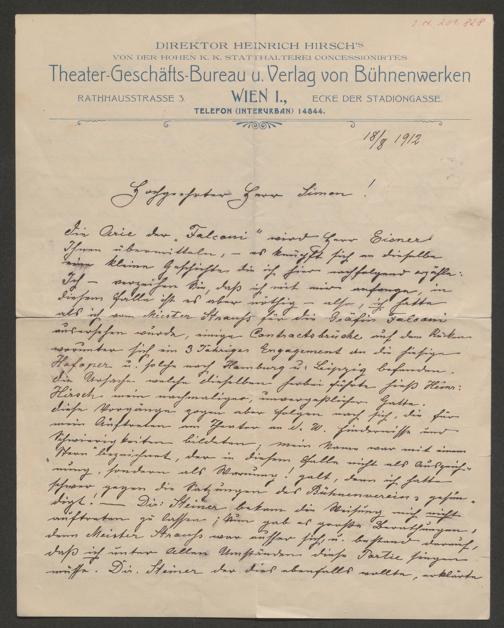 J.N. 209.828
DIREKTOR HEINRICH HIRSCH'S
VON DER HOHEN K. K. STATTHALTEREI CONCESSIONIRTES
Theater-Geschäfts-Bureau u. Verlag von Bühnenwerken
RATHHAUSSTRASSE 3. WIEN I., ECKE DER STADIONGASSE.
TELEFON (INTERURBAN) 14844.
18/8 1912
Hochgeehrter Herr Simon!
Die Arie der „Falconi" wird Herr Eisner
Ihnen übermitteln, – es knüpft sich an dieselbe
eine kleine Geschichte die ich hier nachfolgend erzähle:
Ich – verzeihen Sie, daß ich mit mir anfange, in
diesem Falle ist es aber nöthig – also, ich hatte
als ich von Meister Strauß für die Gräfin Falconi
ausersehen wurde, einige Contractsbrüche auf dem Rücken
worunter sich ein 3 jähriges Engagement an die hiesige
Hofoper u. solche nach Hamburg u. Leipzig befanden.
Die Ursache welche dieselben herbei führte hieß Heinr:
Hirsch mein nachmaliger, unvergeßlicher Gatte.
Diese Vorgänge zogen aber Folgen nach sich, die für
mein Auftreten am Theater a. d. W. Hindernisse und
Schwierigkeiten bildeten, mein Name war mit einem
Stern bezeichnet, der in diesem Falle nicht als Auszeich-
nung, sondern als Warnung! galt, denn ich hatte
schwer gegen die Satzungen des Bühnenvereins gesün-
digt! – Dir: Steiner bekam die Weisung mich nicht
auftreten zu lassen; nun gab es große Berathungen,
denn Meister Strauß war außer sich u. bestand darauf,
daß ich unter Allen Umständen diese Partie singen
müsse. Dir. Steiner der dies ebenfalls wollte, erklärte